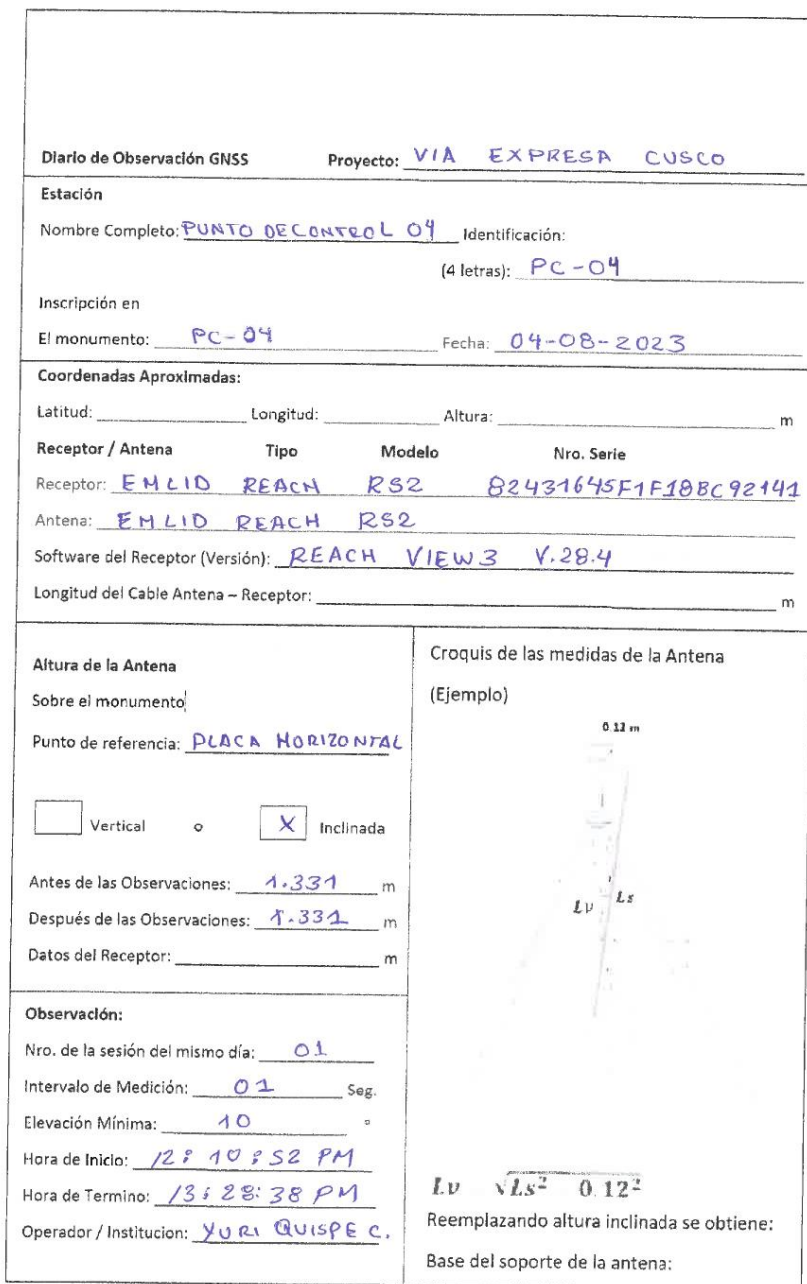 Diario de Observación GNSS Proyecto: VIA EXPRESA CUSCO
Estación
Nombre Completo: PUNTO DE CONTROL 04 Identificación:
(4 letras): PC-04
Inscripción en
El monumento: PC-04 Fecha: 04-08-2023
Coordenadas Aproximadas:
Latitud: Longitud: Altura: m
Receptor / Antena Tipo Modelo Nro. Serie
Receptor: EMLID REACH RS2 82431645F1F18BC92141
Antena: EMLID REACH RS2
Software del Receptor (Versión): REACH VIEW3 V.28.4
Longitud del Cable Antena – Receptor: m
Altura de la Antena
Sobre el monumento
Punto de referencia: PLACA HORIZONTAL
Vertical o X Inclinada
Antes de las Observaciones: 1.331 m
Después de las Observaciones: 1.331 m
Datos del Receptor: m
Observación:
Nro. de la sesión del mismo día: 01
Intervalo de Medición: 01 Seg.
Elevación Mínima: 10 °
Hora de Inicio: 12:10:52 PM
Hora de Termino: 13:28:38 PM
Operador / Institucion: YURI QUISPE C.
Croquis de las medidas de la Antena
(Ejemplo)
0.12 m
Lv Ls
Lv √Ls² 0.12²
Reemplazando altura inclinada se obtiene:
Base del soporte de la antena: